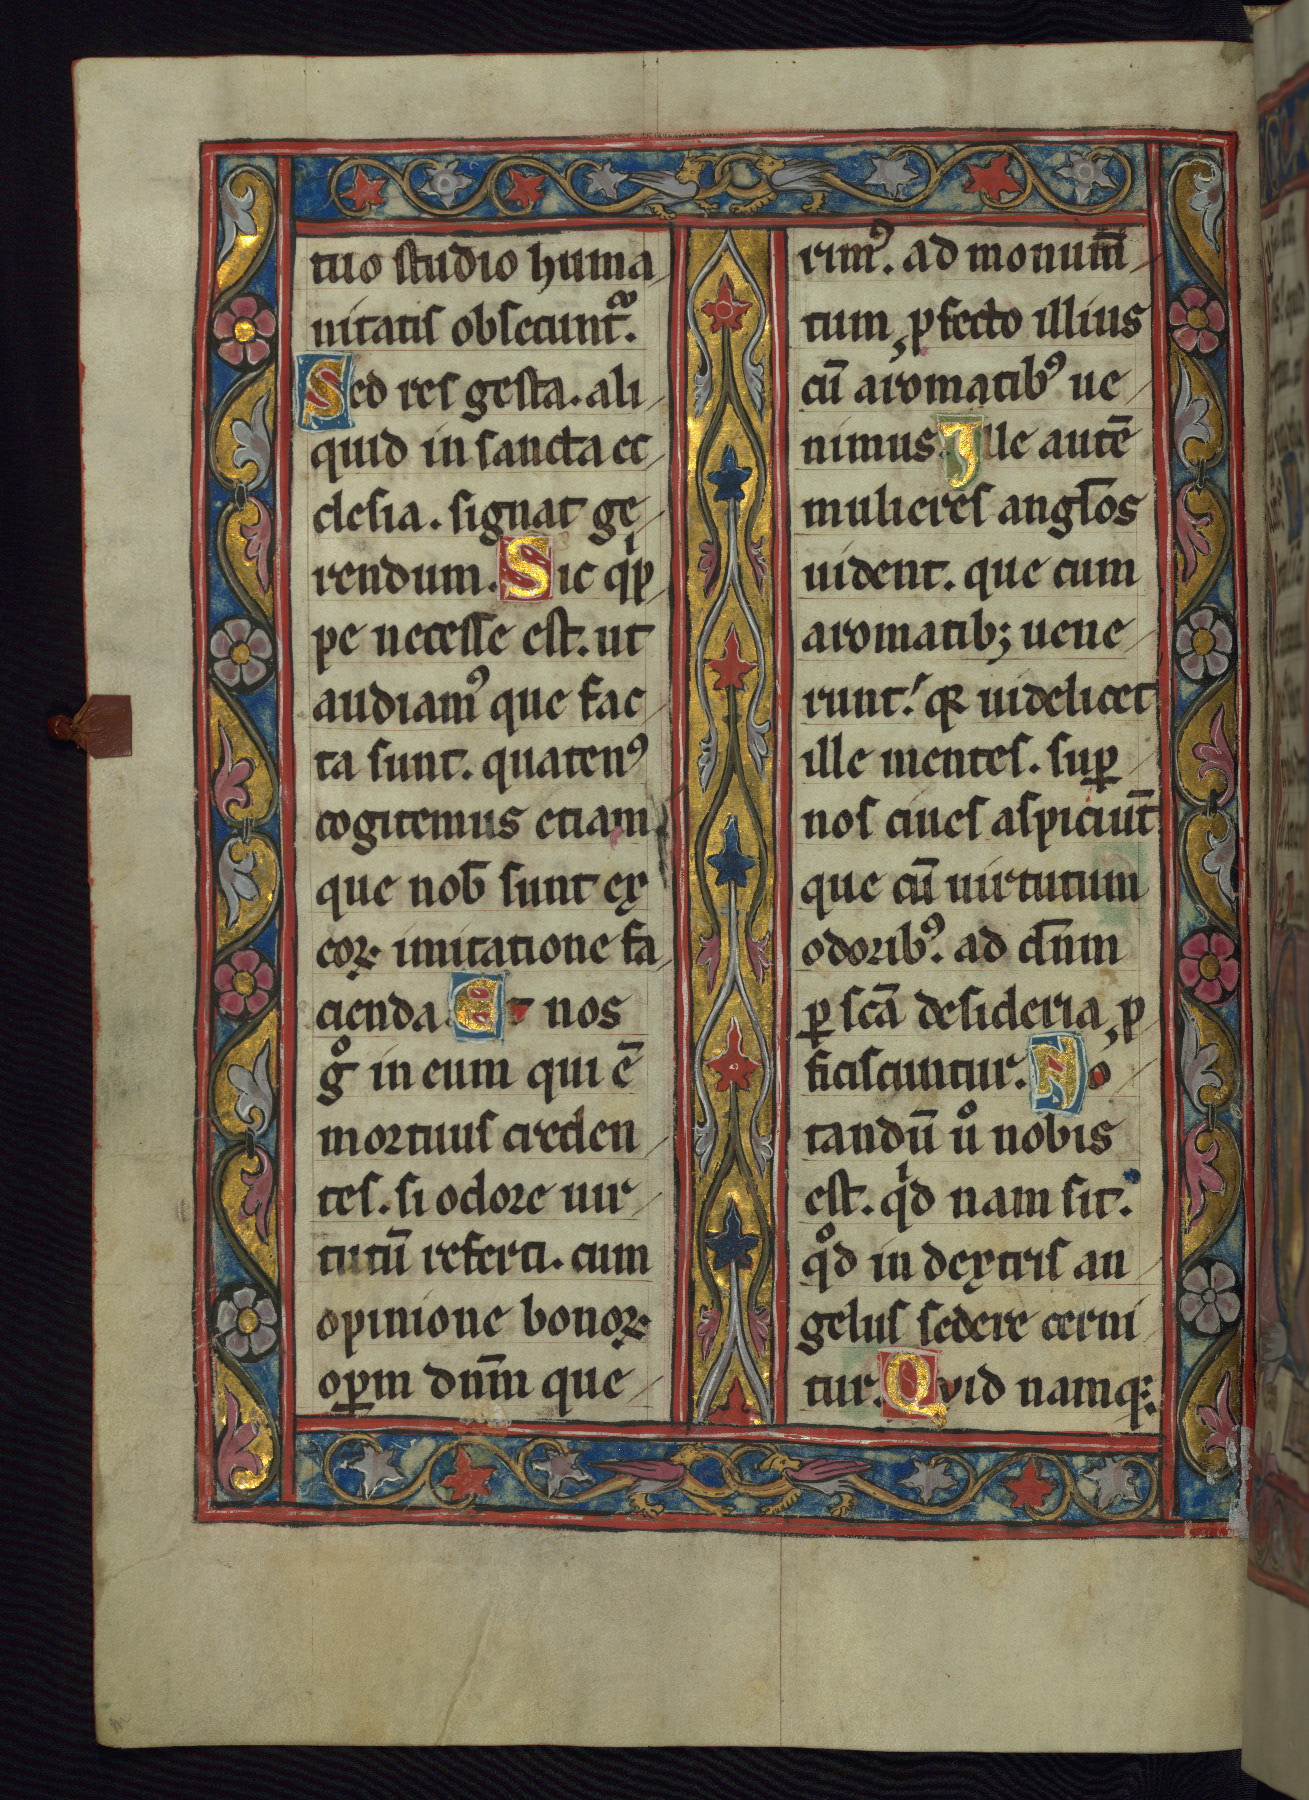 tuo studio huma
nitatis obsecunt᷑.
Sed res gesta. ali
quid in sancta ec
clesia. signat ge
rendum. Sic qͥp
pe necesse est. ut
audiamꝰ que fac
ta sunt. quatenꝰ
cogitemus etiam
que nob̅ sunt ex
eoꝝ imitatione fa
cienda. Et nos
gͦ in eum qui ē
mortuus creden
tes. si odore uir
tutū referti. cum
opinione bonoꝝ
oꝑm dnm̅ que
rimꝰ. ad monum̅
tum ꝓfecto illius
cū aromatibꝰ ue
nimus. Ille autē
mulieres angl̅os
uident. que cum
aromatib; uene
runt. qꝛ uidelicet
ille mentes. suꝑ
nos ciues aspiciūt
que cū uirtutum
odoribꝰ. ad dn̅m
ꝑ scā desideria ꝓ
ficiscuntur. No
tandū uͦ nobis
est. qͥd nam sit.
qͦd in dextris an
gelus sedere cerni
tur. Quid namq;